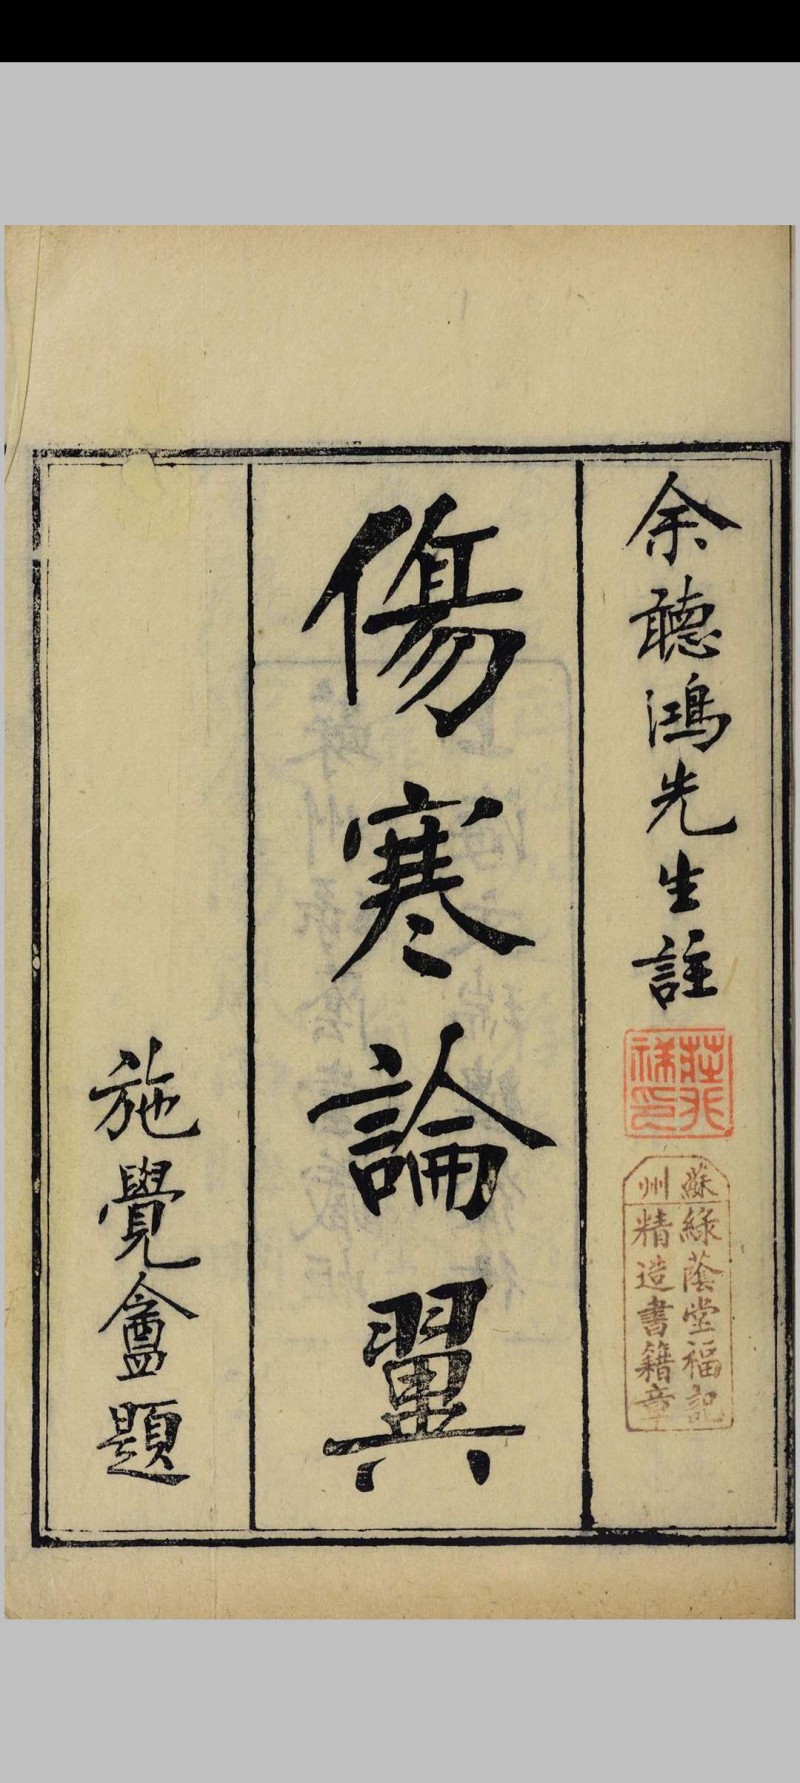 余聽鴻先生註
蘇州
綠蔭堂福記
精造書籍章
傷寒論翼
施覺盦題